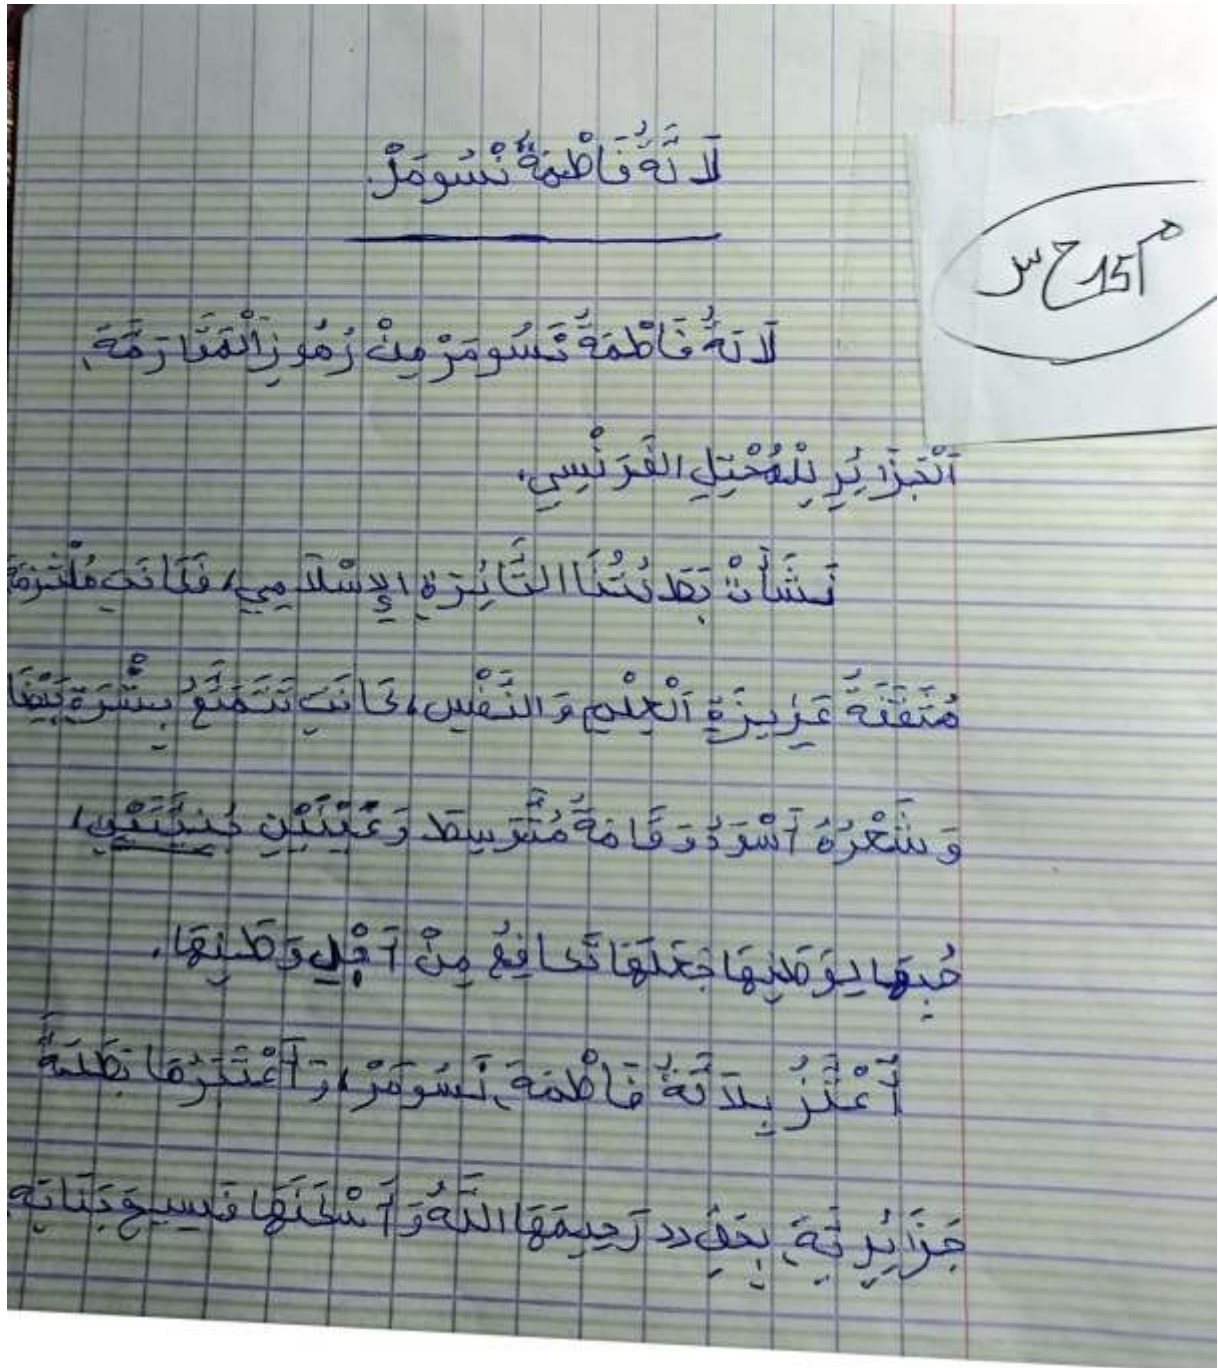 لَا لَةُ فَاطْمَةُ نْسُومَرْ.
م 15 ح س
لَا لَةُ فَاطْمَةُ نَسُومَرْ مِنْ رُمُوزِ الْمَقَارَمَةَ
اَلْجَزَايُرِ لِلْمُحْتِلِ الفَرَنْسِي.
نَشَأَتْ بَطَلَتُنَا الثَّائِرَةِ الإِسْلَامِي، فَكَانَتَ مُلْتَزِمَة
مُتَقَفَةُ عَزِيزَةِ اَلْعِلْمِ وَالنَّفْسِ، كَانَتَ تَتَمَتَّعُ بِبْشَرَةِ بَيْضَا
وَشَعْرُهُ أَسْوَدُ وَقَامَةُ مُتَوَسِطَ وَعَيْنَيْنِ
حُبِهَا لِوَطَنِهَا جَعَلَهَا تَدَافِعُ مِنْ أَجْلِ وَطَنِهَا.
أَعْتَزُ بِلَالَةُ فَاطْمَةَ نَسُومَرْ، وَأَعْتَبَرُهَا بَطَلَةُ
جَزَايُرِيَةَ بِحَقِ رَحِمَهَا اللَّهُ وَأَسْكَنَهَا فَسِيحَ جَنَاتِهِ